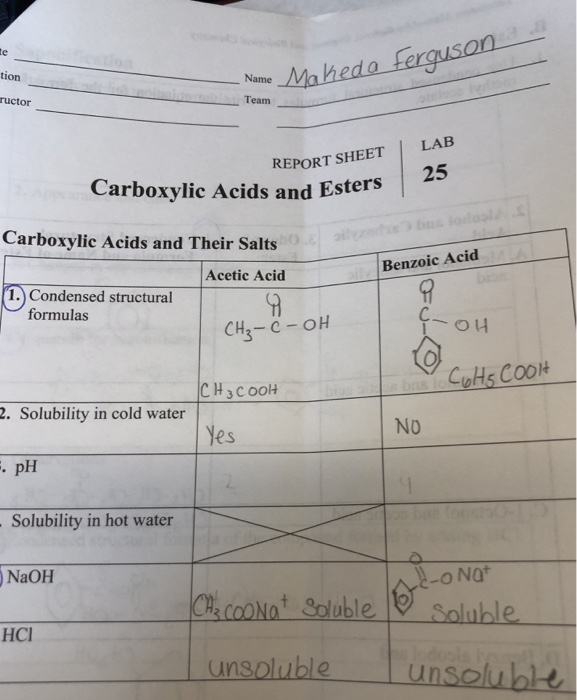 te
tion
Name Makeda Ferguson
ructor
Team
REPORT SHEET
LAB
Carboxylic Acids and Esters
25
Carboxylic Acids and Their Salts
Acetic Acid
Benzoic Acid
1. Condensed structural
formulas
O
CH3-C-OH
CH3COOH
O
C-OH
C6H5COOH
2. Solubility in cold water
Yes
NO
. pH
2
4
Solubility in hot water
NaOH
CH3COONa+ Soluble
O
C-ONa+
Soluble
HCl
unsoluble
unsoluble